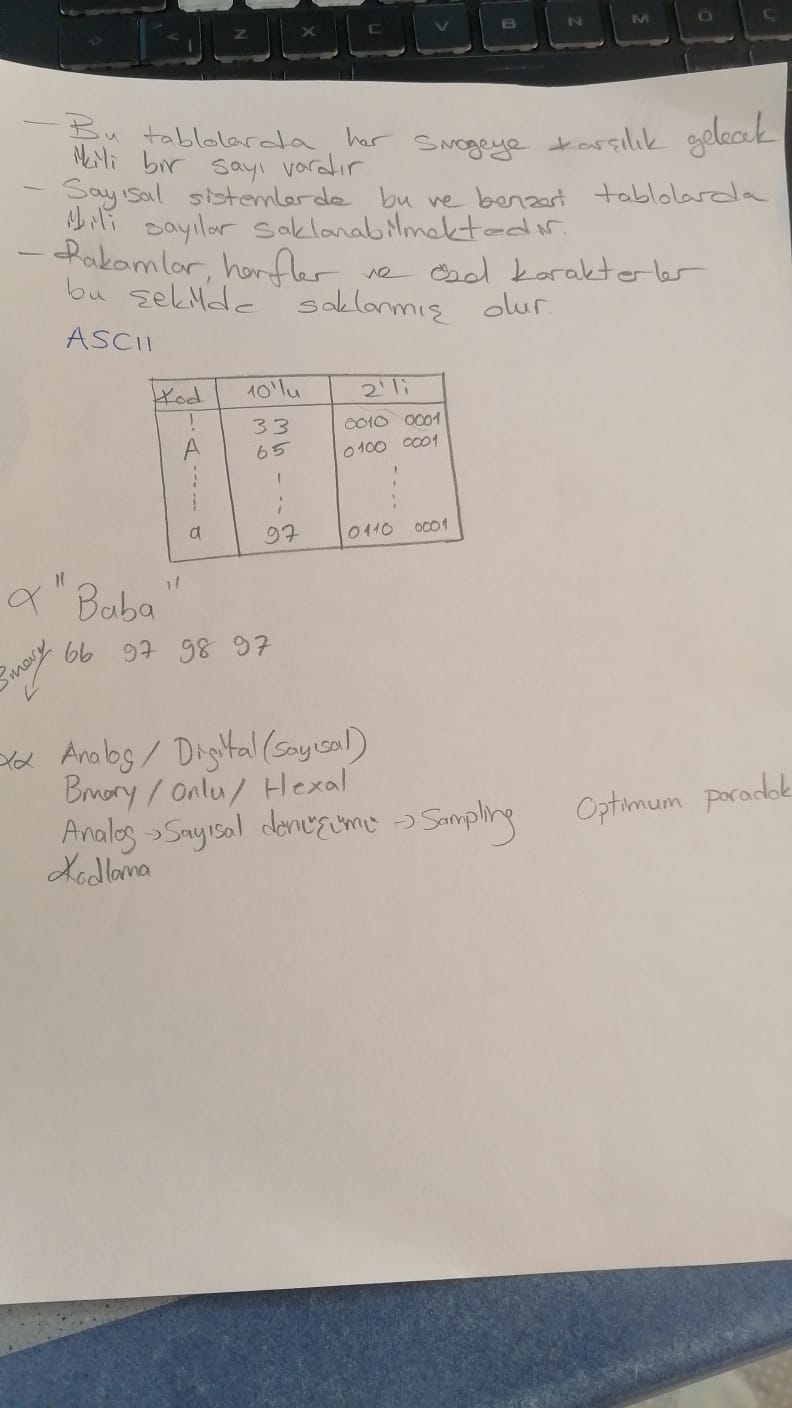 Z X C V B N M Ö Ç
- Bu tablolarda her simgeye karşılık gelecek
ikili bir sayı vardır
- Sayısal sistemlerde bu ve benzeri tablolarda
ikili sayılar saklanabilmektedir.
- Rakamlar, harfler ve özel karakterler
bu şekilde saklanmış olur.
ASCII
Kod 10'lu 2'li
! 33 0010 0001
A 65 0100 0001
a 97 0110 0001
α "Baba"
Binary 66 97 98 97
αα Analog / Digital (sayısal)
Binary / Onlu / Hexal
Analog → Sayısal dönüşümü → Sampling Optimum paradok
Kodlama